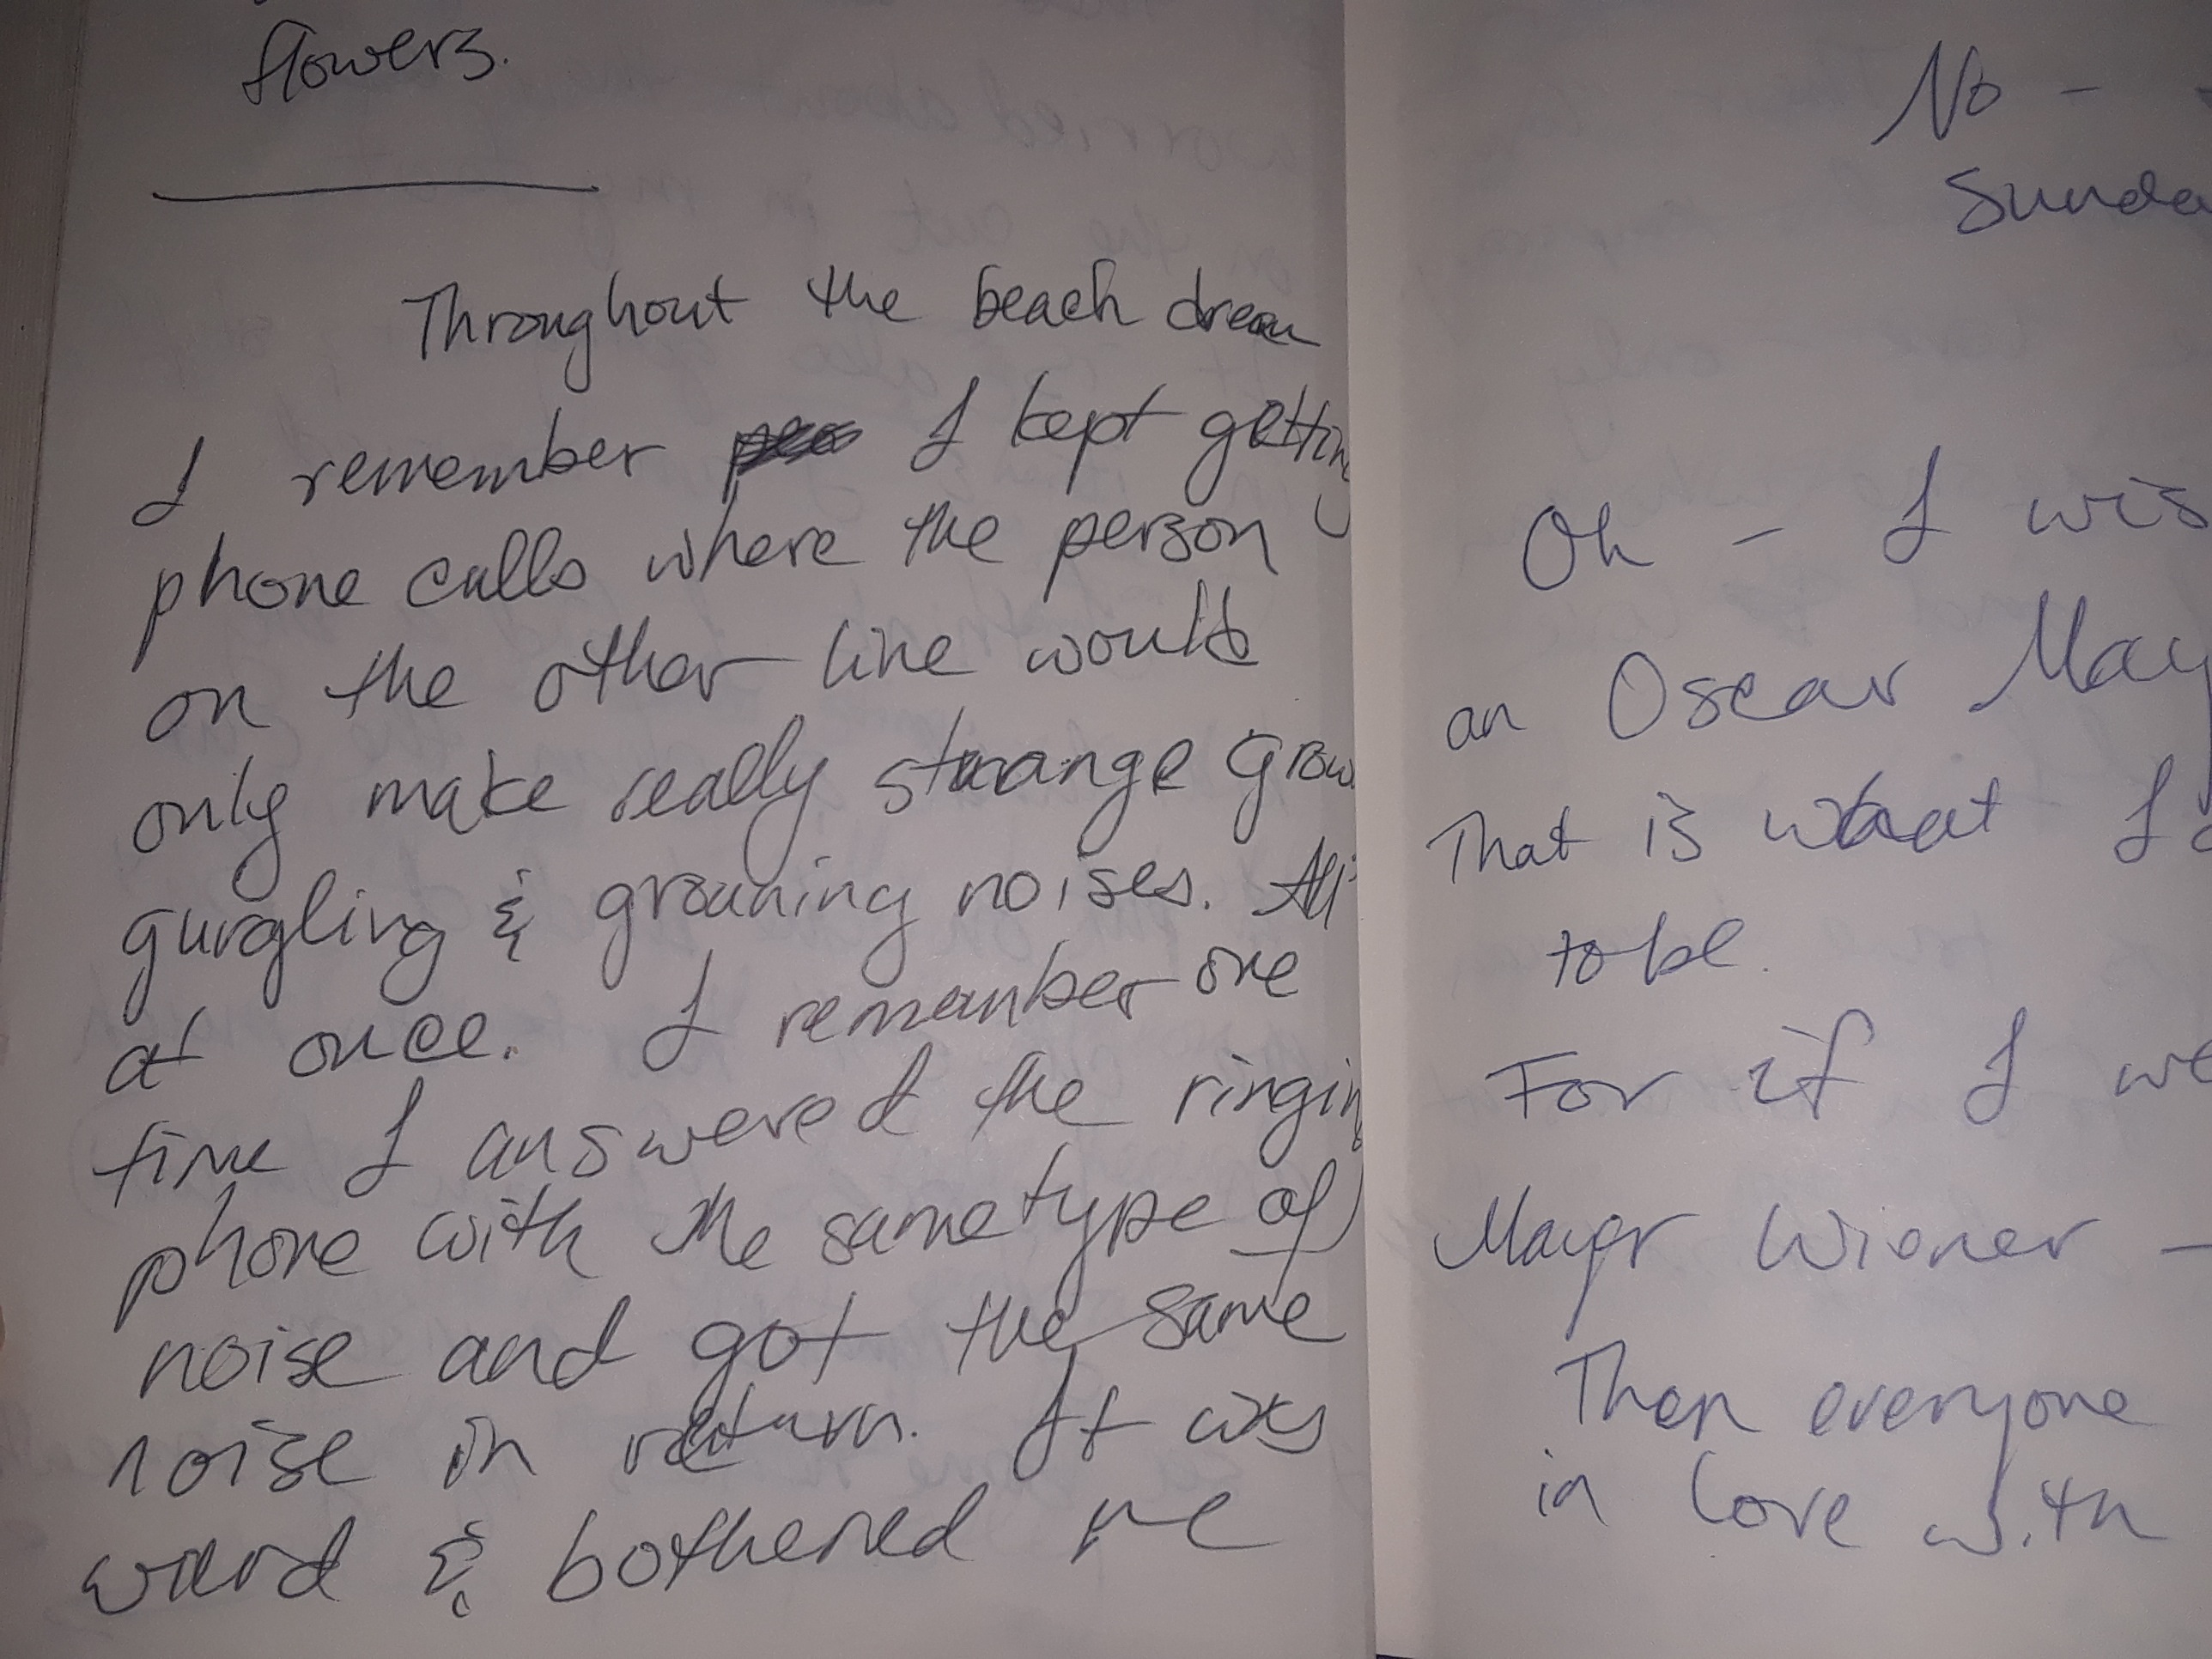 flowers.
Throughout the beach dream
I remember I kept getting
phone calls where the person
on the other line would
only make really strange grow
gurgling & groaning noises. All
at once. I remember one
time I answered the ringing
phone with the same type of
noise and got the same
noise in return. It was
wierd & bothered me
No -
Sunda
Oh - I wis
an Oscar May
That is what I
to be.
For if I we
Mayer Wiener -
Then everyone
in love with